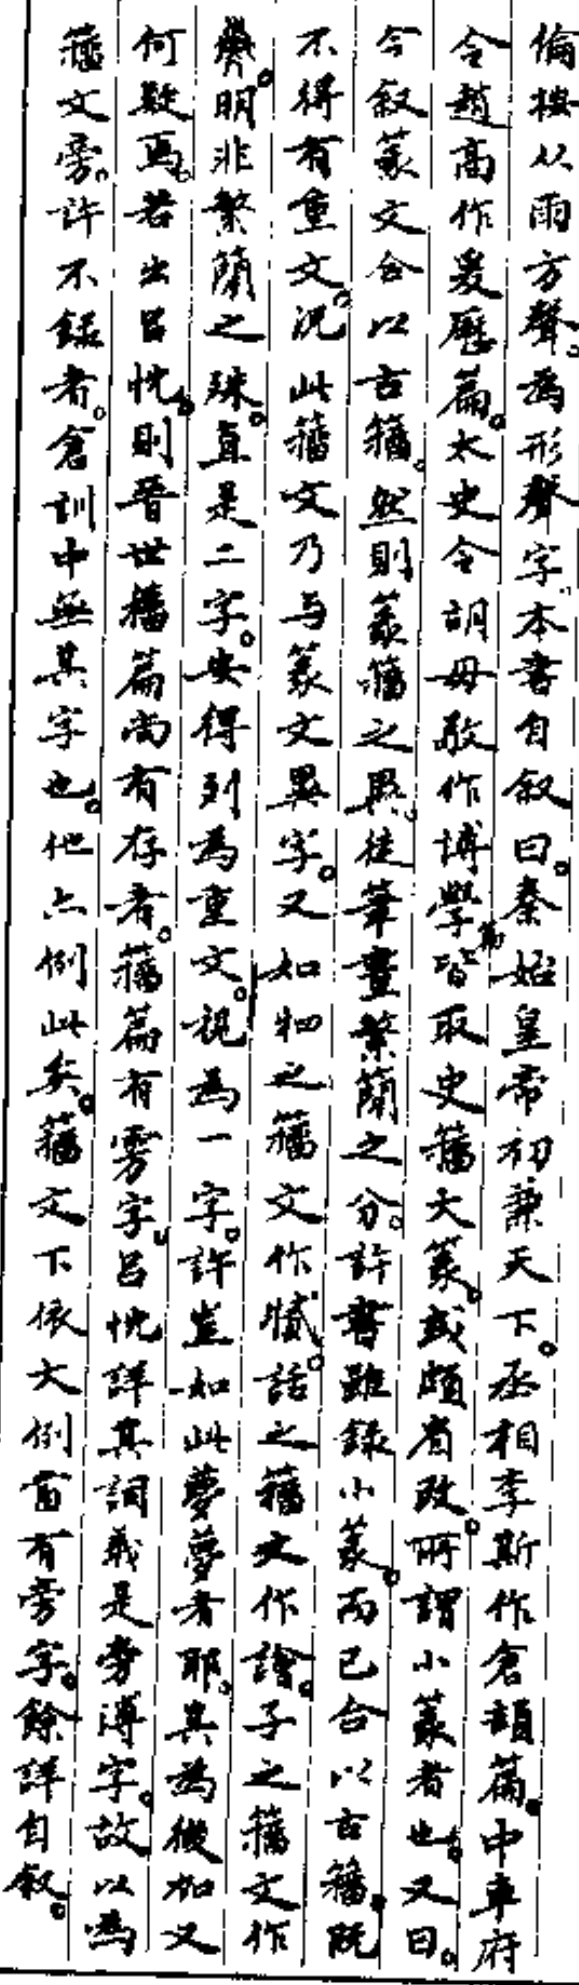 倫按从雨方聲。為形聲字、本書自叙曰。秦始皇帝初兼天下。丞相李斯作倉頡篇。中車府
令趙高作爰歷篇。太史令胡毋敬作博學篇皆取史籀大篆。或頗省改。所謂小篆者也。又曰。
今叙篆文合以古籀。然則篆籀之異、徒筆畫繁簡之分。許書雖錄小篆。而已合以古籀。既
不得有重文。況此籀文乃与篆文異字。又如牭之籀文作𤛾。話之籀文作譮。子之籀文作
。明非繁簡之殊。直是二字。安得列為重文。視為一字。許豈如此夢夢者耶。其為後加又
何疑焉。若出呂忱。則晉世籀篇尚有存者。籀篇有雱字、呂忱詳其詞義是旁溥字。故以為
籀文旁。許不錄者。倉訓中無其字也。他亦例此矣。籀文下依大例當有旁字。餘詳自叙。